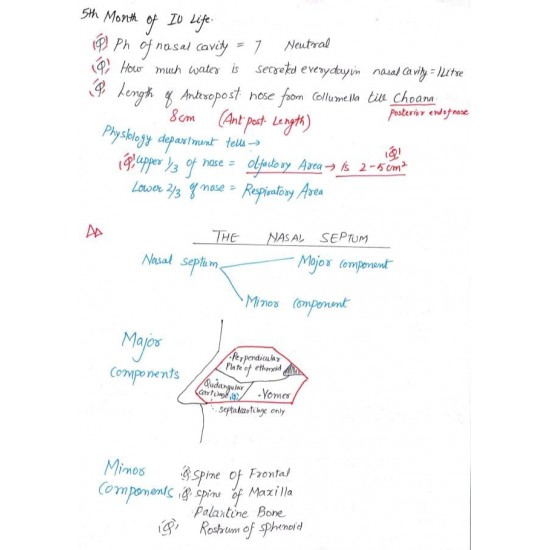 5th Month of IU Life.
(Q) Ph of nasal cavity = 7 Neutral
(Q) How much water is secreted everyday in nasal cavity = 1Litre
(Q) Length of Anteropost nose from Collumella till Choana
Posterior end of nose
8cm (Ant post. Length)
Physiology department tells →
(Q) upper 1/3 of nose = olfactory Area → is 2-5cm² (Q)
Lower 2/3 of nose = Respiratory Area
THE NASAL SEPTUM
Nasal septum
Major component
Minor component
Major components
Perpendicular Plate of ethmoid
Quadangular Cartilage (Q)
Vomer
septalcartilage only
Minor components
(Q) Spine of Frontal
(Q) spine of Maxilla
Palantine Bone
(Q) Rostrum of sphenoid